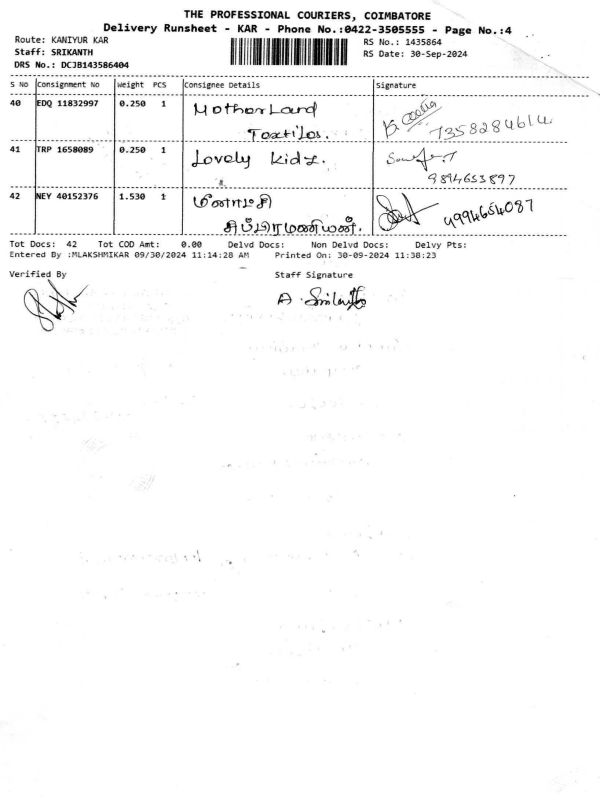 THE PROFESSIONAL COURIERS, COIMBATORE
Delivery Runsheet - KAR - Phone No.:0422-3505555 - Page No.:4
Route: KANIYUR KAR RS No.: 1435864
Staff: SRIKANTH RS Date: 30-Sep-2024
DRS No.: DCJB143586404
S No Consignment No Weight PCS Consignee Details Signature
40 EDQ 11832997 0.250 1 Motherland
Textiles. 7358284614
41 TRP 1658089 0.250 1 Lovely Kidz.
9894653897
42 NEY 40152376 1.530 1 மீனாட்சி
சுப்பிரமணியன். 9994654087
Tot Docs: 42 Tot COD Amt: 0.00 Delvd Docs: Non Delvd Docs: Delvy Pts:
Entered By :MLAKSHMIKAR 09/30/2024 11:14:28 AM Printed On: 30-09-2024 11:38:23
Verified By Staff Signature